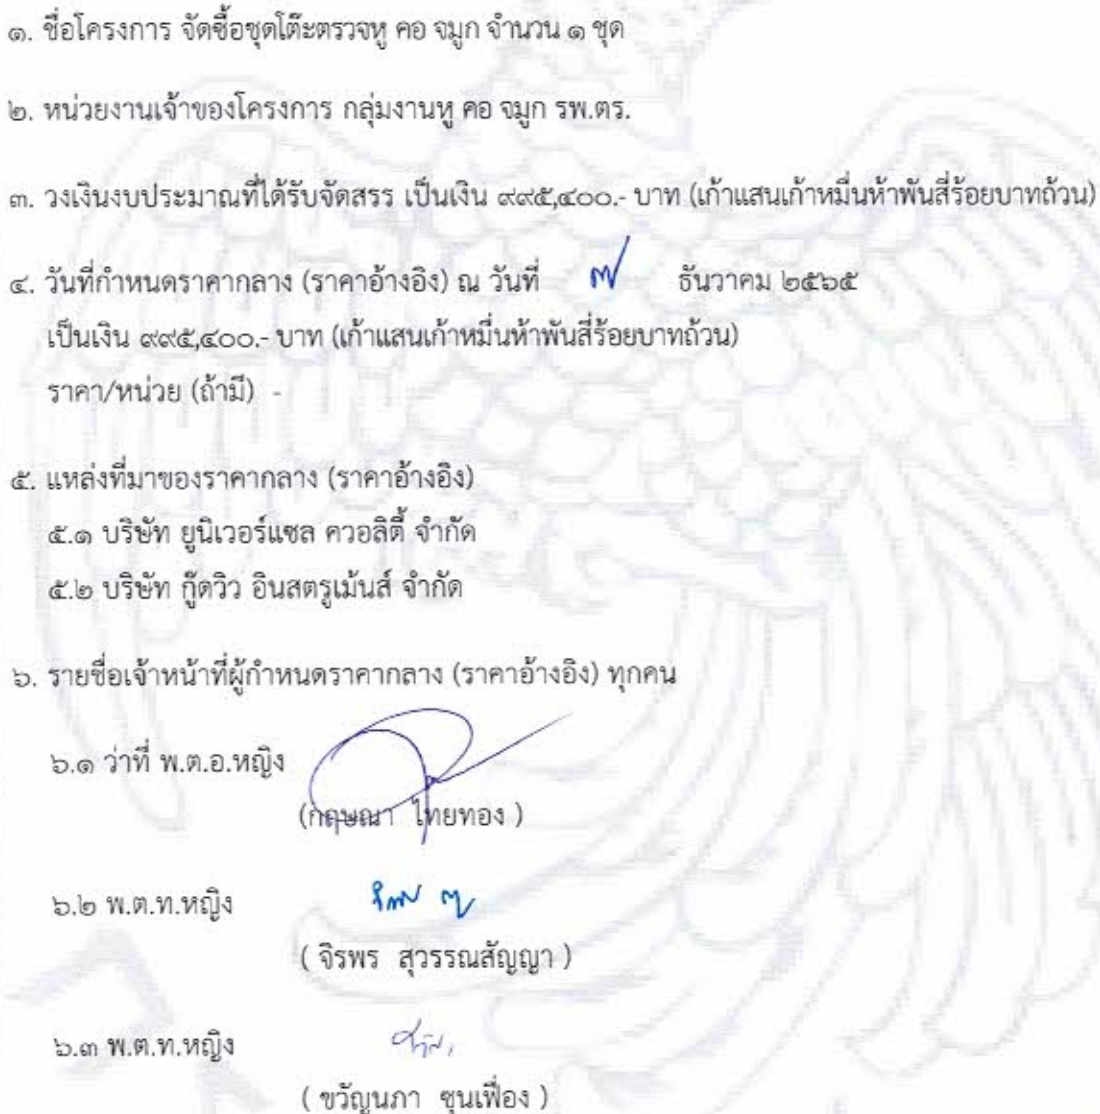 ๑. ชื่อโครงการ จัดซื้อชุดโต๊ะตรวจหู คอ จมูก จำนวน ๑ ชุด
๒. หน่วยงานเจ้าของโครงการ กลุ่มงานหู คอ จมูก รพ.ตร.
๓. วงเงินงบประมาณที่ได้รับจัดสรร เป็นเงิน ๙๙๕,๔๐๐.- บาท (เก้าแสนเก้าหมื่นห้าพันสี่ร้อยบาทถ้วน)
๔. วันที่กำหนดราคากลาง (ราคาอ้างอิง) ณ วันที่ ๗ ธันวาคม ๒๕๖๕
เป็นเงิน ๙๙๕,๔๐๐.- บาท (เก้าแสนเก้าหมื่นห้าพันสี่ร้อยบาทถ้วน)
ราคา/หน่วย (ถ้ามี) -
๕. แหล่งที่มาของราคากลาง (ราคาอ้างอิง)
๕.๑ บริษัท ยูนิเวอร์แซล ควอลิตี้ จำกัด
๕.๒ บริษัท กู๊ดวิว อินสตรูเม้นส์ จำกัด
๖. รายชื่อเจ้าหน้าที่ผู้กำหนดราคากลาง (ราคาอ้างอิง) ทุกคน
๖.๑ ว่าที่ พ.ต.อ.หญิง
(กฤษณา ไทยทอง )
๖.๒ พ.ต.ท.หญิง
( จิรพร สุวรรณสัญญา )
๖.๓ พ.ต.ท.หญิง
( ขวัญนภา ซุนเฟื่อง )